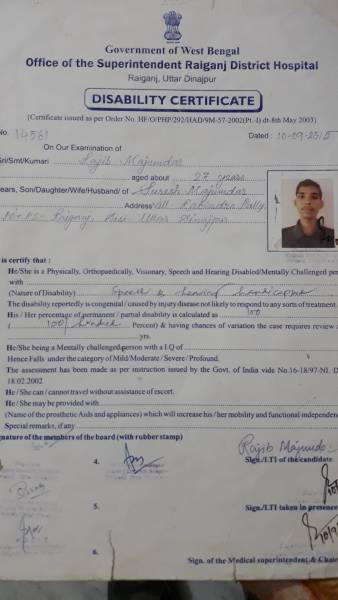 Government of West Bengal
Office of the Superintendent Raiganj District Hospital
Raiganj, Uttar Dinajpur
DISABILITY CERTIFICATE
(Certificate issued as per Order No. HF/O/PHP/292/HAD/9M-57-2002(Pt.-I) dt-8th May 2003)
No. 14581 Dated : 10-09-2015
On Our Examination of
Sri/Smt/Kumari Rajib Majumdar
aged about 27 years
ears, Son/Daughter/Wife/Husband/ of Suresh Majumdar
Address Vill. Rabindra Pally
Raiganj, Dist. Uttar Dinajpur
is certify that :
He/She is a Physically, Orthopaedically, Visionary, Speech and Hearing Disabled/Mentally Challenged pe
with
(Nature of Disability) Speech & hearing handicapped
The disability reportedly is congenital / caused by injury disease not likely to respond to any sorts of treatment.
His / Her percentage of permanent / partial disability is calculated as 100
( 100/ hundred Percent) & having chances of variation the case requires review a
yrs.
He/She being a Mentally challenged person with a I.Q of
Hence Falls under the category of Mild/Moderate / Severe / Profound.
The assessment has been made as per instruction issued by the Govt. of India vide No.16-18/97-NI. D
18.02.2002
He / She can / cannot travel without assistance of escort.
He / She may be provided with
(Name of prosthetic Aids and appliances) which will increase his / her mobility and functional independen
Special remarks, if any
nature of the members of the board (with rubber stamp)
Rajib Majumdar
4. Sign./LTI of the candidate
5. Sign./LTI taken in presence
6.
Sign. of the Medical superintendent & Chair